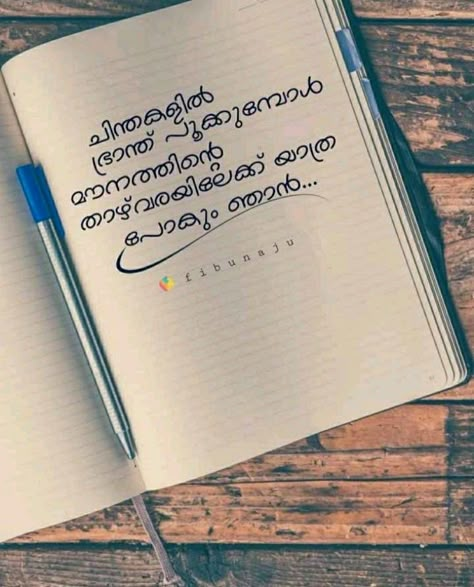 ചിന്തകളിൽ
ഭ്രാന്ത് പൂക്കുമ്പോൾ
മൗനത്തിന്റെ
താഴ്‌വരയിലേക്ക് യാത്ര
പോകും ഞാൻ...
fibunaju